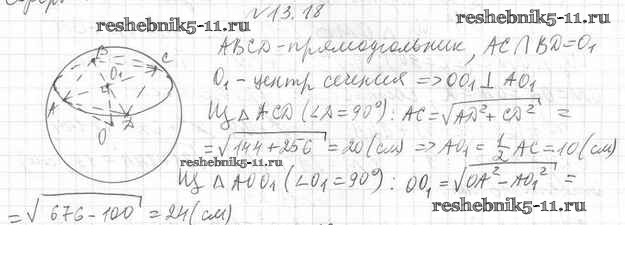 №13.18
reshebnik5-11.ru
reshebnik5-11.ru
ABCD-прямоугольник, AC∩BD=O₁
O₁-центр сечения ⇒ OO₁ ⊥ AO₁
Из △ACD (∠D=90°): AC=√(AD²+CD²) =
=√(144+256) =20(см) ⇒ AO₁ = ½ AC=10(см)
reshebnik5-11.ru
Из △AOO₁ (∠O₁=90°): OO₁ =√(OA²-AO₁²) =
reshebnik5-11.ru
=√(676-100) =24(см)
B
C
O₁
A
D
O